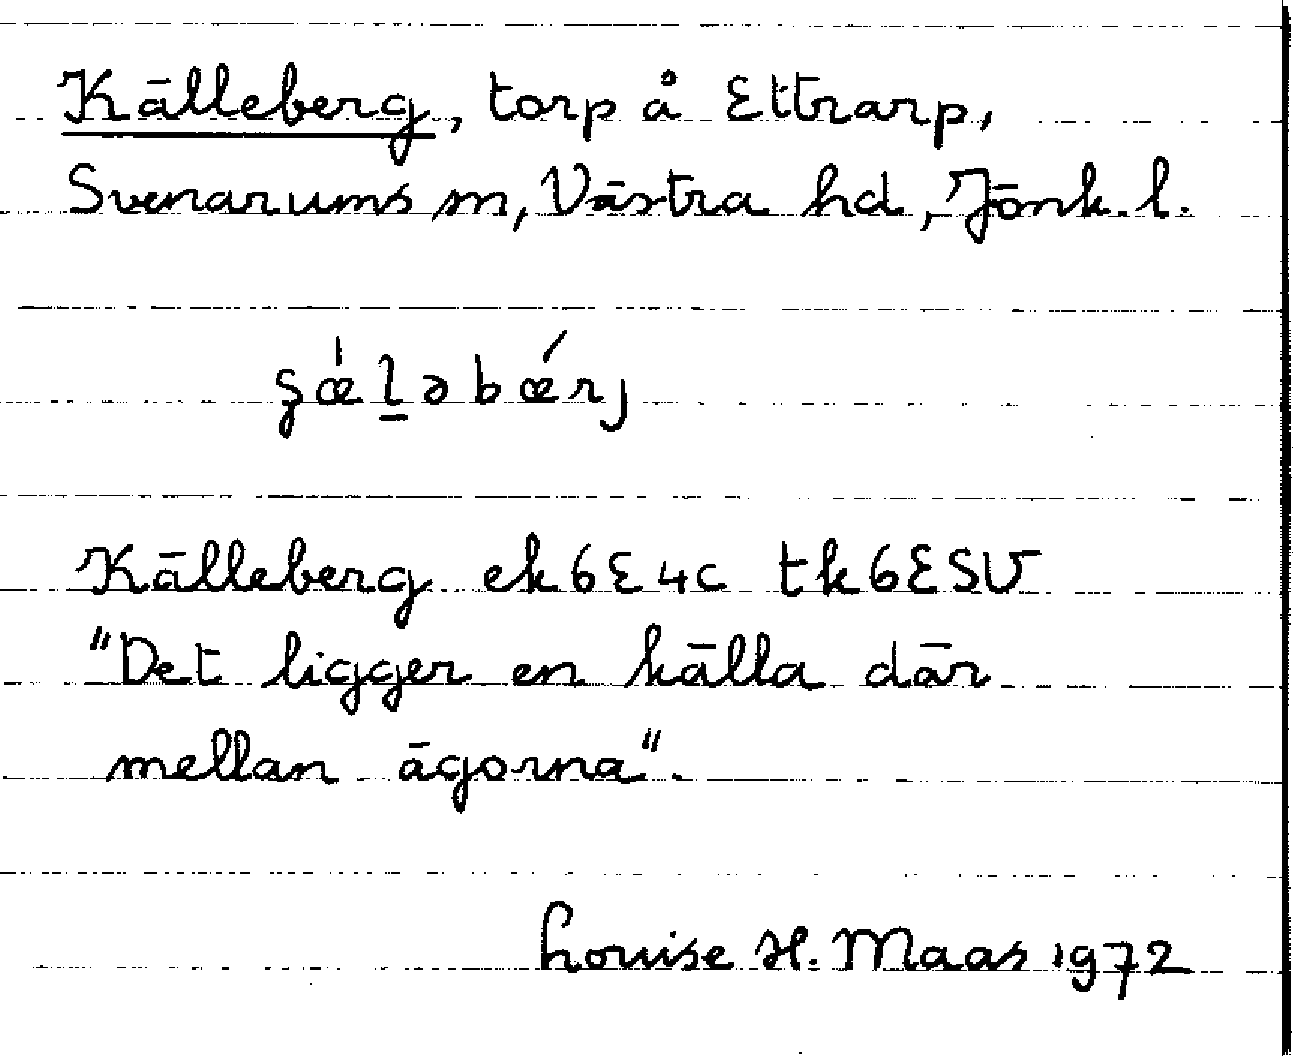 Källeberg, torp å Ettrarp,
Svenarums sn, Västra hd, Jönk. l.
ʂœ̍l̠əbœ́rj
Källeberg ek 6E4c tk 6ESV
"Det ligger en källa där
mellan ägorna".
Louise H. Maas 1972